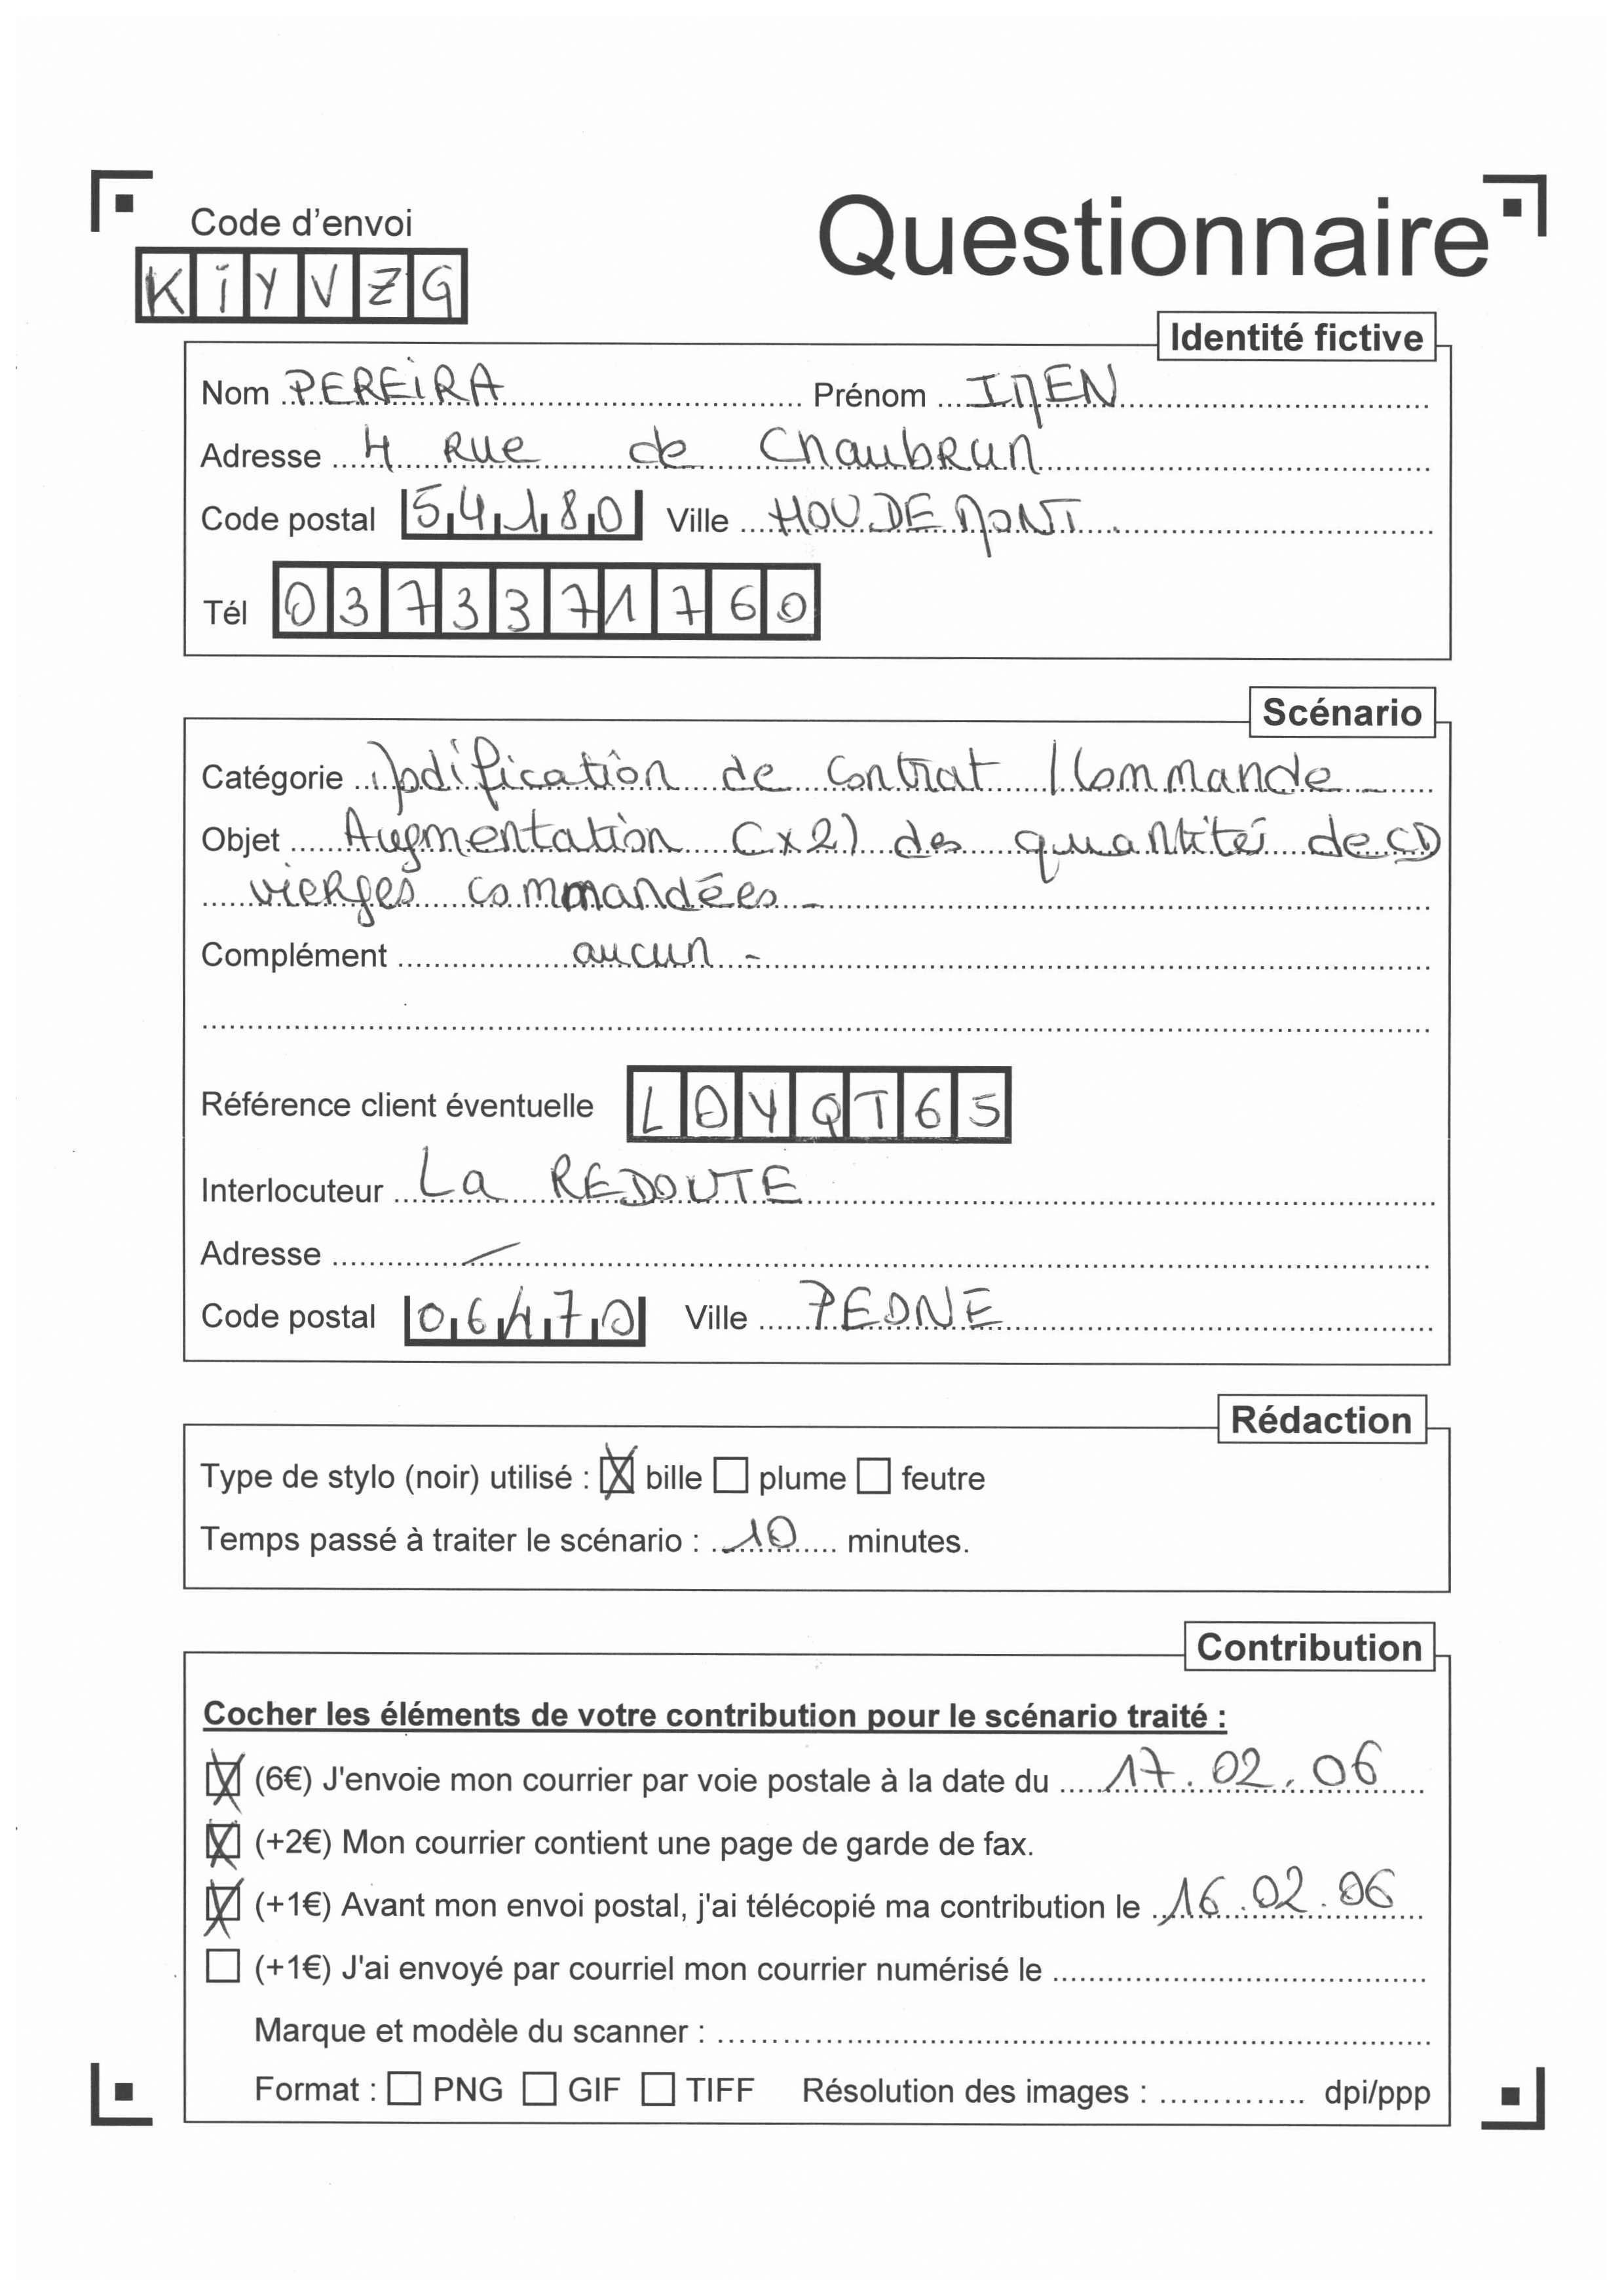 Code d'envoi
Questionnaire
KIYVZG
Identité fictive
Nom PEREIRA Prénom IMEN
Adresse 4 Rue de Chaubrun
Code postal 54180 Ville HOUDEMONT
Tél 0373371760
Scénario
Catégorie Modification de contrat / Commande
Objet Augmentation (x2) des quantités de CD
vierges commandées
Complément aucun
Référence client éventuelle LOYQT65
Interlocuteur La REDOUTE
Adresse
Code postal 06470 Ville PEONE
Rédaction
Type de stylo (noir) utilisé : bille plume feutre
Temps passé à traiter le scénario : 10 minutes.
Contribution
Cocher les éléments de votre contribution pour le scénario traité :
(6€) J'envoie mon courrier par voie postale à la date du 17.02.06
(+2€) Mon courrier contient une page de garde de fax.
(+1€) Avant mon envoi postal, j'ai télécopié ma contribution le 16.02.06
(+1€) J'ai envoyé par courriel mon courrier numérisé le
Marque et modèle du scanner :
Format : PNG GIF TIFF Résolution des images : dpi/ppp